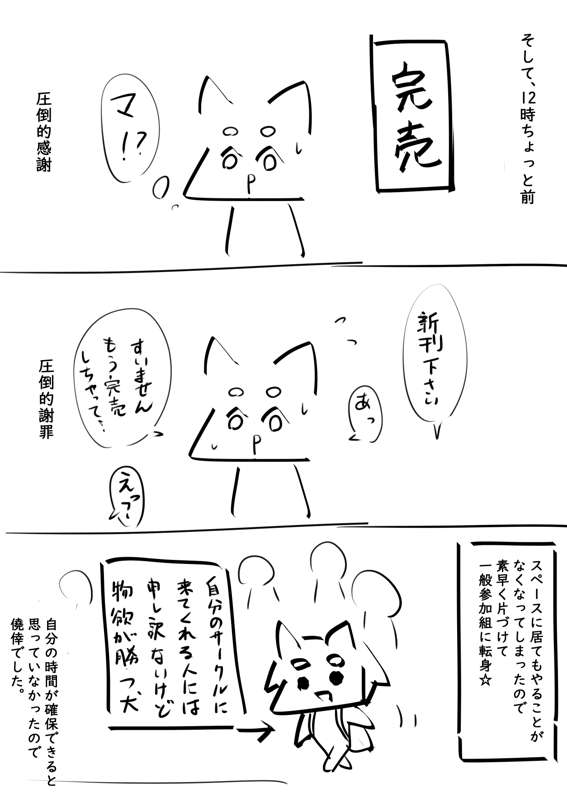 そして、12時ちょっと前
完売
マ!?
圧倒的感謝
新刊下さい
あっ
すいません
もう完売
しちゃって…
えっ
圧倒的謝罪
スペースに居てもやることが
なくなってしまったので
素早く片づけて
一般参加組に転身☆
自分のサークルに
来てくれる人には
申し訳ないけど
物欲が勝つ、犬
自分の時間が確保できると
思っていなかったので
僥倖でした。